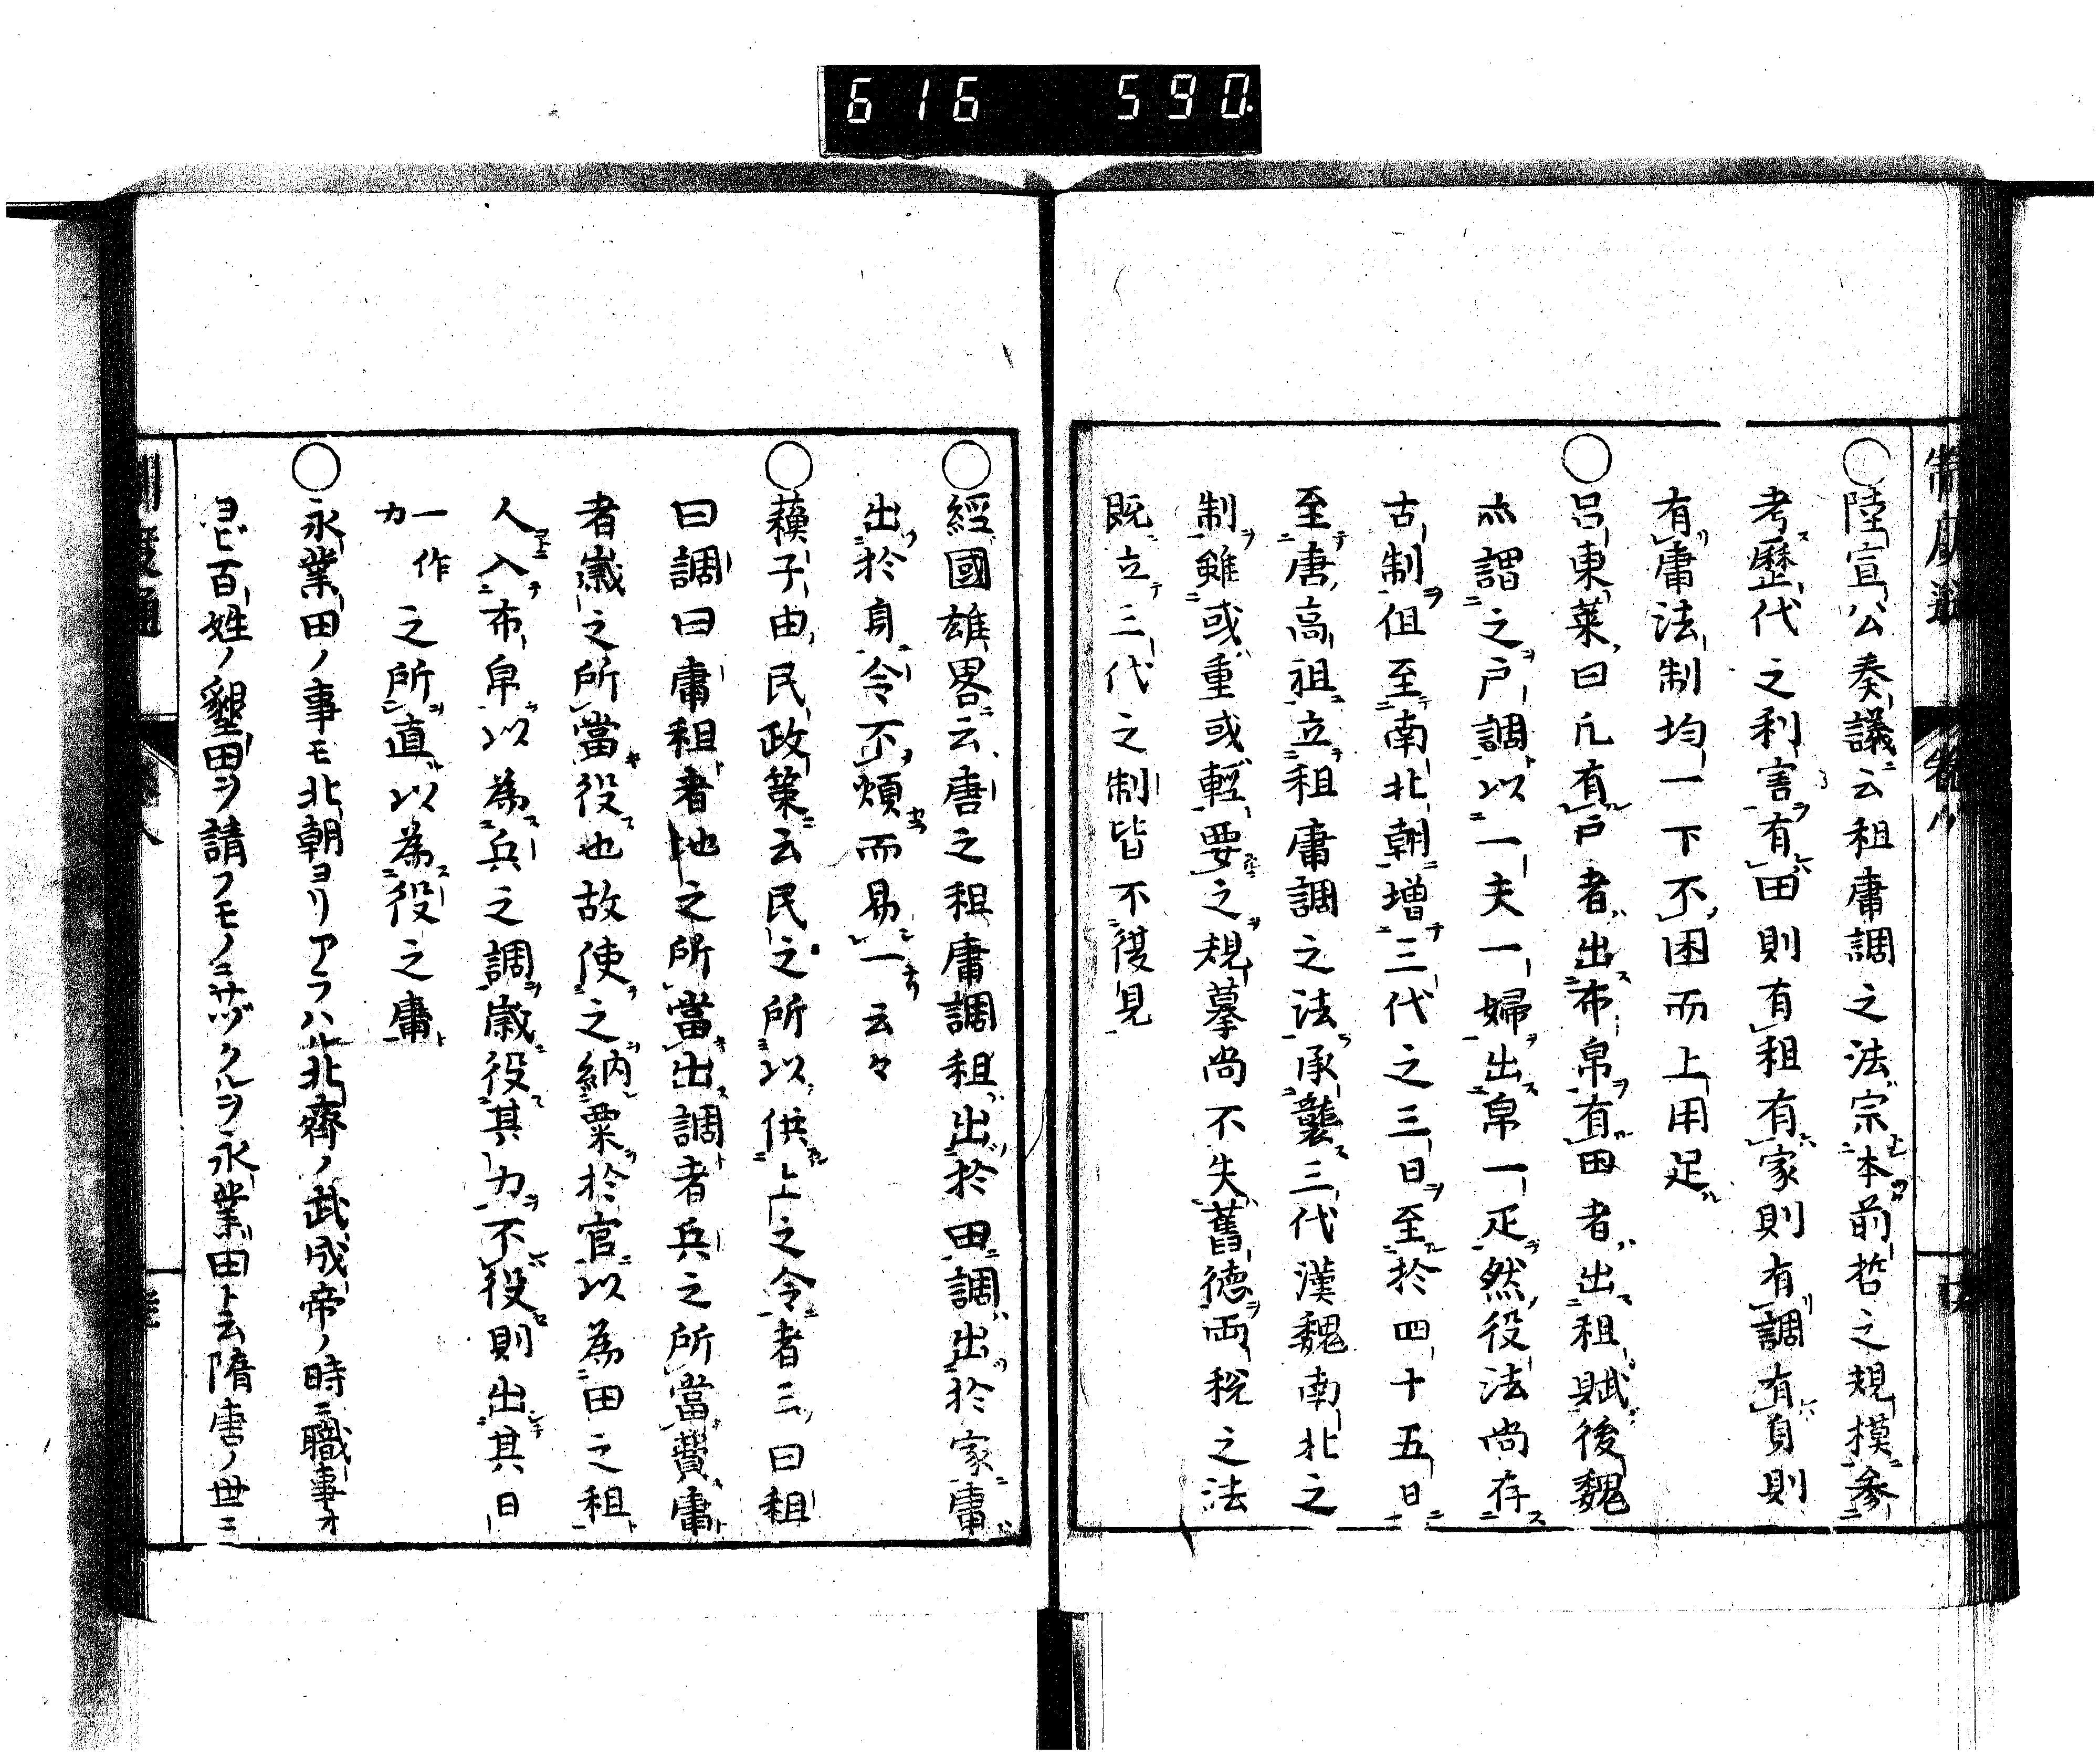 616 590
制度通 卷八
○陸宣公奏議ニ云租庸調之法宗本前哲之規模參
考歷代之利害有田則有租有家則有調有身則
有庸法制均一下不困而上用足
○呂東萊曰凡有戸者出布帛有田者出租賦後魏
亦謂之戸調以一夫一婦出帛一疋然役法尚存
古制但至南北朝増三代之三日至於四十五日
至唐高祖立租庸調之法承襲三代漢魏南北之
制雖或重或輕要之規摹尚不失舊德両税之法
既立三代之制皆不復見
○經國雄畧云唐之租庸調租出於田調出於家庸
出於身令不煩而易一云々
○蘓子由民政策云民之所以供上之令者三曰租
曰調曰庸租者地之所當出調者兵之所當費庸
者歳之所當役也故使之納粟於官以為田之租
人入布帛以為兵之調歳役其力不役則出其日
一作力之所直以為役之庸
○永業田ノ事モ北朝ヨリアラハル北齊ノ武成帝ノ時ニ職事オ
ヨビ百姓ノ墾田ヲ請フモノニサヅクルヲ永業田ト云隋唐ノ世ニ